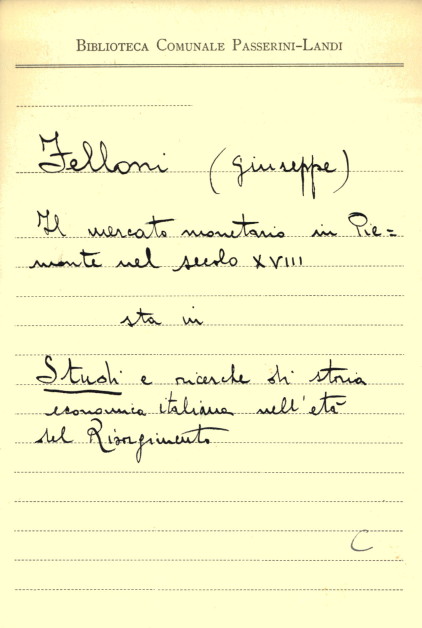 BIBLIOTECA COMUNALE PASSERINI-LANDI
Felloni (Giuseppe)
Il mercato monetario in Pie=
monte nel secolo XVIII
sta in
Studi e ricerche di storia
economica italiana nell'età
del Risorgimento
C